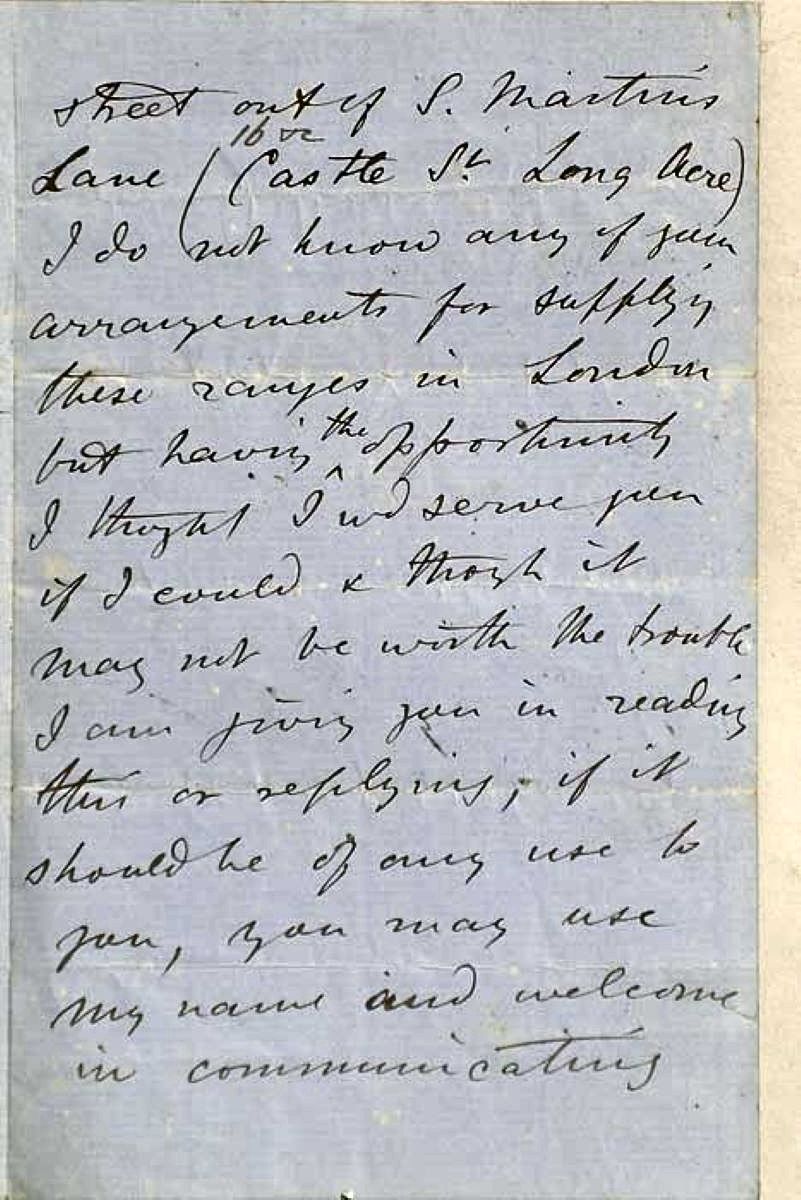 street out of S. Martins
Lane (Castle St. Long Acre)
I do not know any of your
arrangements for supplying
these ranges in London
but having the opportunity
I thought I wd serve you
if I could & though it
may not be worth the trouble
I am giving you in reading
this or replying, if it
should be of any use to
you, you may use
my name and welcome
in communicating